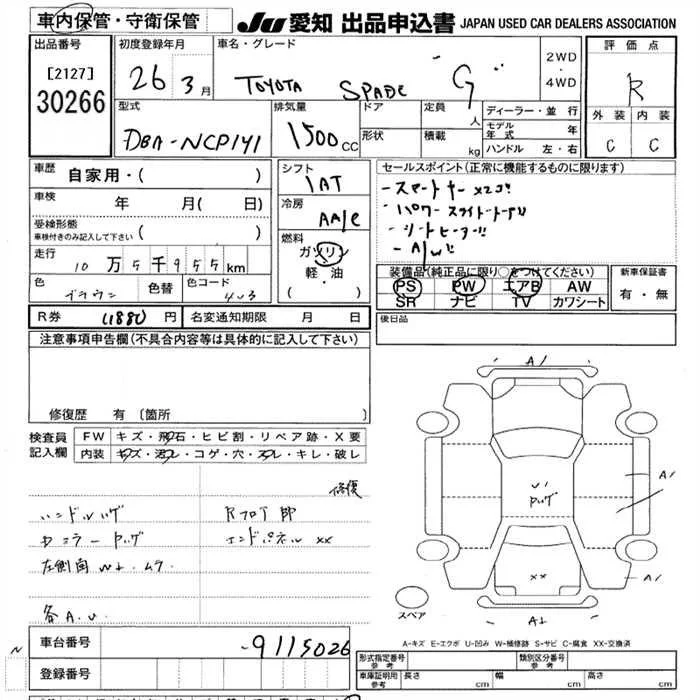 車内保管・守衛保管
JU 愛知 出品申込書 JAPAN USED CAR DEALERS ASSOCIATION
出品番号
[2127]
30266
初度登録年月
26 3月
車名・グレード
TOYOTA SPADE "G"
2WD
・
4WD
評価点
R
外装 内装
C C
型式
DBA-NCP141
排気量
1500cc
ドア
形状
定員 人
積載 kg
ディーラー・並行
モデル年式 年
ハンドル 左・右
車歴 自家用・( )
車検 年 月( 日)
受検形態
車検付きのみ記入して下さい ( )
走行 10万5千955km
色 ブラウン 色替 色コード 4v3
シフト
IAT
冷房
AA/C
燃料
ガソリン
軽・油
( ・ )
セールスポイント(正常に機能するものに限ります)
-スマートキーx2コ!!
・パワースライドドア!!
・シートヒーター!!
-A/W!!
装備品(純正品に限り○をつけてください)
PS PW エアB AW
SR ナビ TV カワシート
新車保証書
有・無
R券 11880円 名変通知期限 月 日
後日品
注意事項申告欄(不具合内容等は具体的に記入して下さい)
修復歴 有 〔箇所
検査員
記入欄
FW キズ・飛石・ヒビ割・リペア跡・X要
内装 キズ・汚レ・コゲ・穴・スレ・キレ・破レ
修復
ハンドルハゲ
Rフロア 部
カラーハゲ
エンドパネル xx
左側面 W+. ムラ
各A.U.
A1
U1
ハゲ
A1
A1
xx
A+
スペア
A-キズ E-エクボ U-凹み W-補修跡 S-サビ C-腐食 XX-交換済
N
車台番号 -9115026
登録番号
形式指定番号
参考
類別区分番号
参考
車庫証明用
参考
長さ cm 幅 cm 高さ cm